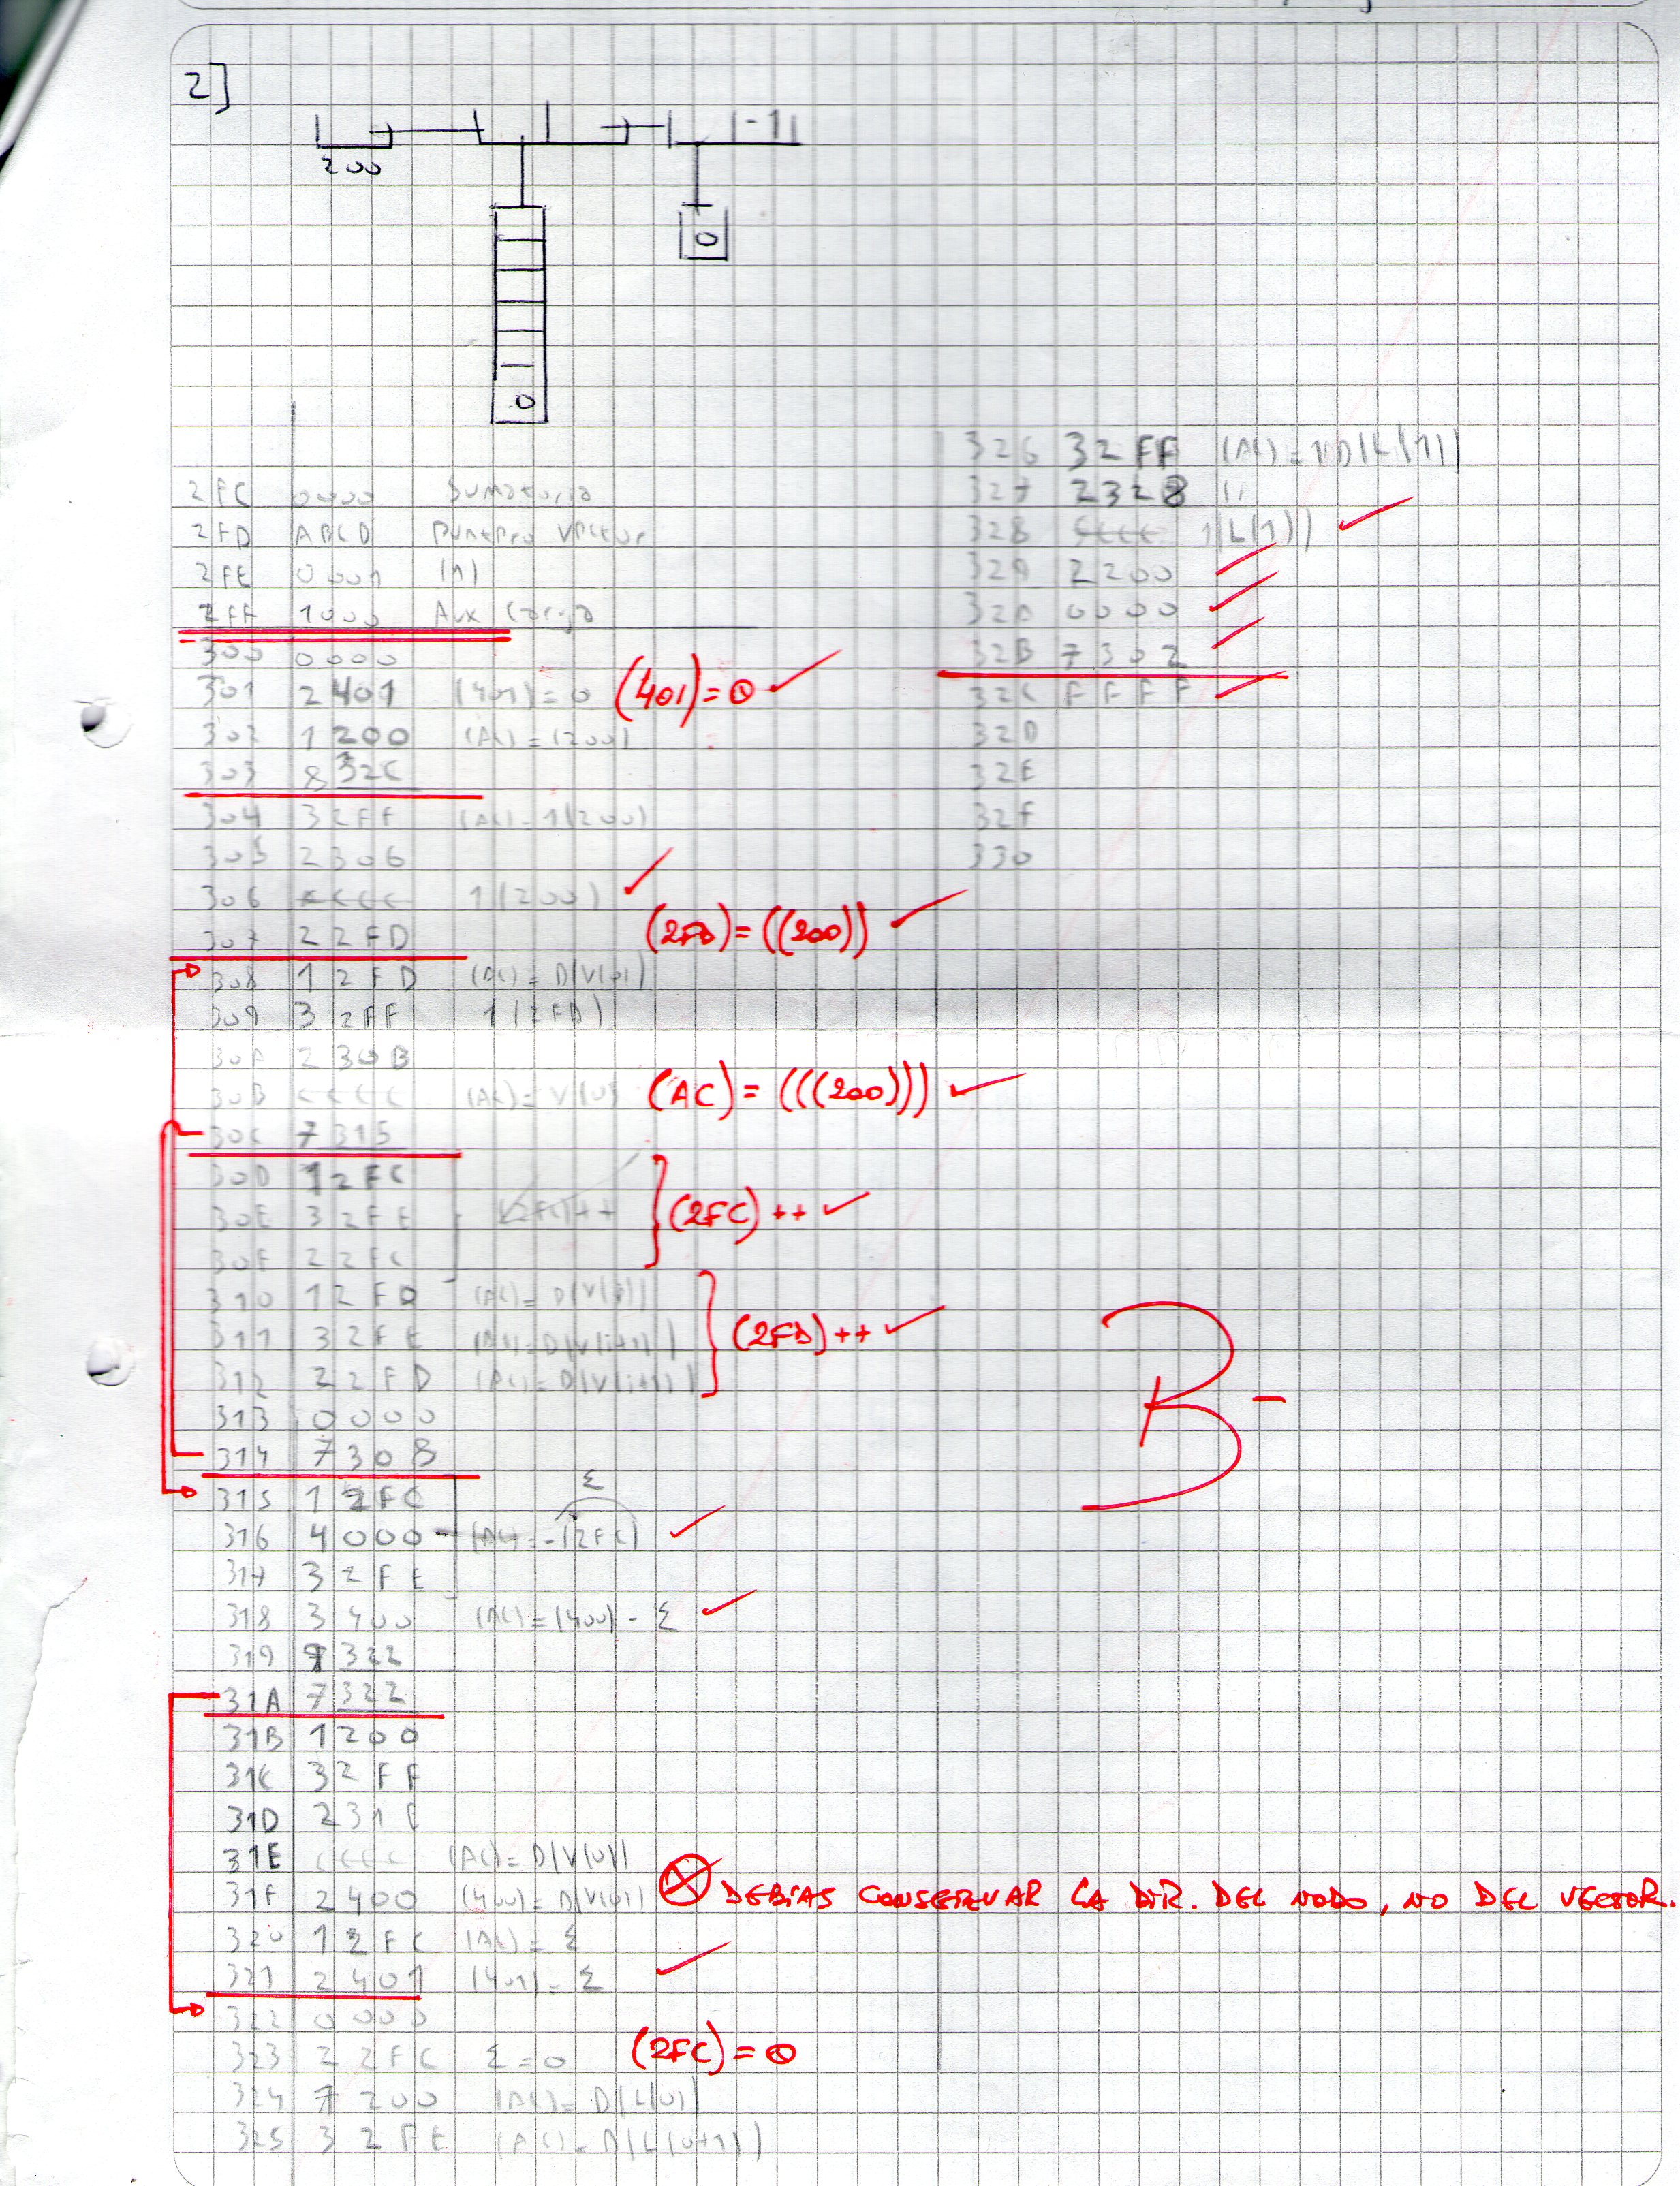 2]
200
-1
0
0
2FC 0000 Sumatoria
2FD ABCD Puntero Vector
2FE 0001 (1)
2FF 1000 Aux Carga
300 0000
301 2401 (401)=0 (401)=0
302 1200 (AC)=(200)
303 832C
304 32FF (AC)=1(200)
305 2306
306 1(200)
307 22FD (2FD)=((200))
308 12FD (AC)=D(V(0))
309 32FF 1(2FD)
30A 230B
30B (AC)=V(0) (AC)=(((200)))
30C 7315
30D 12FC
30E 32FE (2FC)++ (2FC)++
30F 22FC
310 12FD (AC)=D(V(i))
311 32FE (AC)=D(V(i+1)) (2FD)++
312 22FD (AC)=D(V(i+1))
313 0000
314 7308
315 12FC Σ
316 4000 (AC)=-(2FC)
317 32FE
318 3400 (AC)=(400)-Σ
319 9322
31A 7322
31B 1200
31C 32FF
31D 231E
31E (AC)=D(V(0))
31F 2400 (400)=D(V(0)) DEBÍAS CONSERVAR LA DIR. DEL NODO, NO DEL VECTOR.
320 12FC (AC)=Σ
321 2401 (401)=Σ
322 0000
323 22FC Σ=0 (2FC)=0
324 1200 (AC)=D(L(0))
325 32FE (AC)=D(L(0+1))
326 32FF (AC)=1D(L(1))
327 2328
328 1(L(1))
329 2200
32A 0000
32B 7302
32C FFFF
32D
32E
32F
330
B-